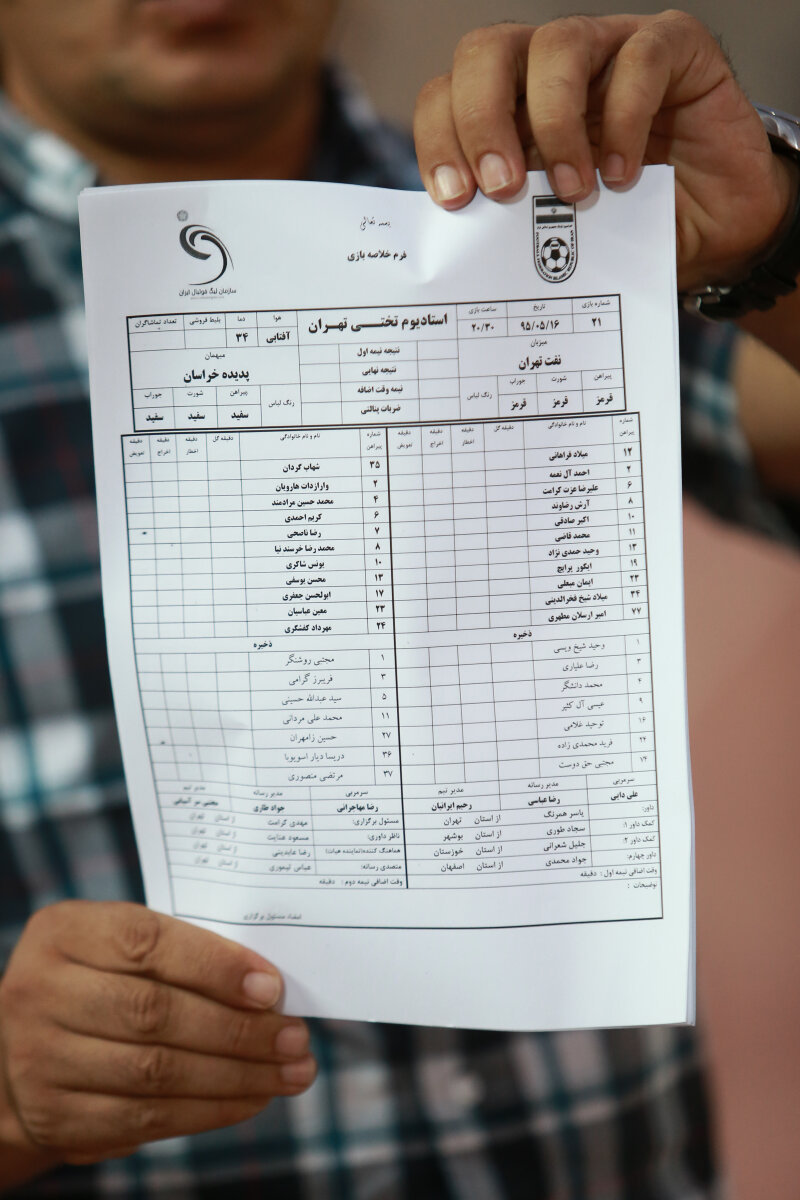 بسمه تعالی
فرم خلاصه بازی
سازمان لیگ فوتبال ایران
FOOTBALL FEDERATION ISLAMIC REPUBLIC OF IRAN
شماره بازی ۲۱ تاریخ ۹۵/۰۵/۱۶ ساعت بازی ۲۰/۳۰ استادیوم تختـــی تهران هوا آفتابی دما ۳۴ بلیط فروشی تعداد تماشاگران
میزبان نفت تهران
پیراهن قرمز شورت قرمز جوراب قرمز رنگ لباس
نتیجه نیمه اول
نتیجه نهایی
نیمه وقت اضافه
ضربات پنالتی
میهمان پدیده خراسان
رنگ لباس پیراهن سفید شورت سفید جوراب سفید
شماره پیراهن نام و نام خانوادگی دقیقه گل دقیقه اخطار دقیقه اخراج دقیقه تعویض
۱۲ میلاد فراهانی
۲ احمد آل نعمه
۶ علیرضا عزت کرامت
۸ آرش رضاوند
۱۰ اکبر صادقی
۱۱ محمد قاضی
۱۳ وحید حمدی نژاد
۱۹ ایگور پراپچ
۲۳ ایمان مبعلی
۳۴ میلاد شیخ فخرالدینی
۷۷ امیر ارسلان مطهری
ذخیره
۱ وحید شیخ ویسی
۳ رضا علیاری
۴ محمد دانشگر
۹ عیسی آل کثیر
۱۶ توحید غلامی
۲۴ فرید محمدی زاده
۱۴ مجتبی حق دوست
سرمربی علی دایی مدیر رسانه رضا عباسی مدیر تیم رحیم ایرانیان
شماره پیراهن نام و نام خانوادگی دقیقه گل دقیقه اخطار دقیقه اخراج دقیقه تعویض
۳۵ شهاب گردان
۲ وارازدات هارویان
۴ محمد حسین مرادمند
۶ کریم احمدی
۷ رضا ناصحی
۸ محمد رضا خرسند نیا
۱۰ یونس شاکری
۱۳ محسن یوسفی
۱۷ ابولحسن جعفری
۲۳ معین عباسیان
۲۴ مهرداد کفشگری
ذخیره
۱ مجتبی روشنگر
۳ فریبرز گرامی
۵ سید عبدالله حسینی
۱۱ محمد علی مردانی
۲۷ حسین زامهران
۳۶ دریسا دیار اسوبویا
۳۷ مرتضی منصوری
سرمربی رضا مهاجرانی مدیر رسانه جواد طاری مدیر تیم مجتبی سر آسیائی
داور: یاسر همرنگ از استان تهران
کمک داور ۱: سجاد طوری از استان بوشهر
کمک داور ۲: جلیل شعرانی از استان خوزستان
داور چهارم: جواد محمدی از استان اصفهان
وقت اضافی نیمه اول : دقیقه
مسئول برگزاری: مهدی کرامت از استان تهران
ناظر داوری: مسعود عنایت از استان تهران
هماهنگ کننده(نماینده هیات) رضا عابدینی از استان تهران
متصدی رسانه: عباس تیموری از استان تهران
وقت اضافی نیمه دوم : دقیقه
توضیحات :
امضاء مسئول برگزاری